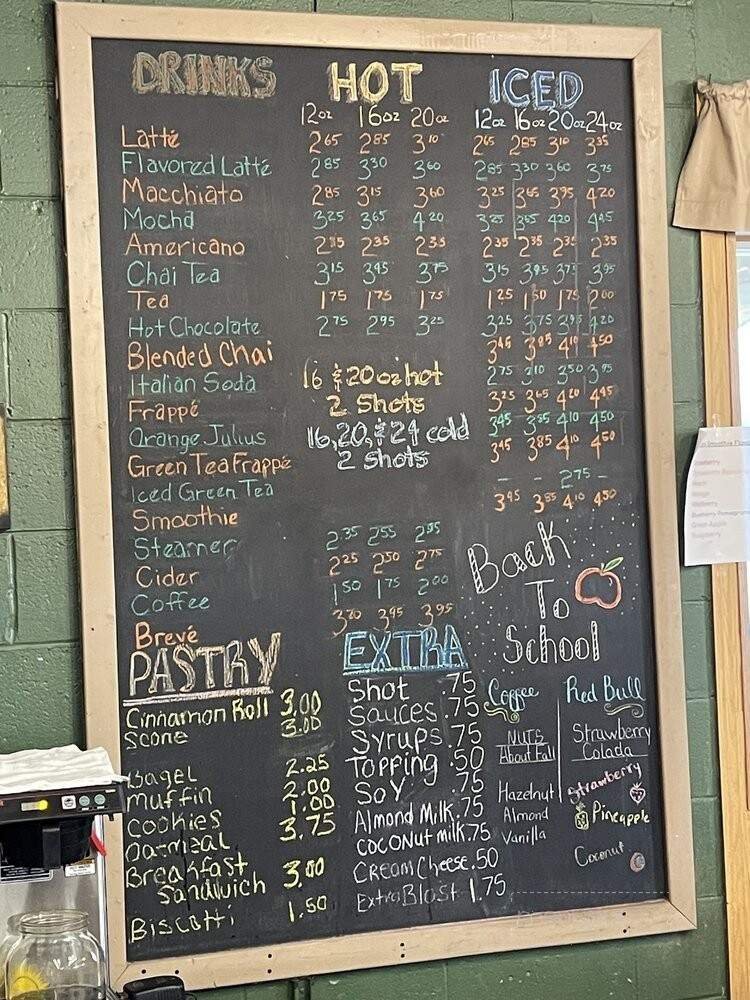 DRINKS HOT ICED
12oz 16oz 20oz 12oz 16oz 20oz 24oz
Latté 2.65 2.85 3.10 2.65 2.85 3.10 3.35
Flavored Latté 2.85 3.30 3.60 2.85 3.30 3.60 3.75
Macchiato 2.85 3.15 3.60 3.25 3.65 3.95 4.20
Mocha 3.25 3.65 4.20 3.25 3.65 4.20 4.45
Americano 2.15 2.35 2.35 2.35 2.35 2.35 2.35
Chai Tea 3.15 3.45 3.75 3.15 3.45 3.75 3.95
Tea 1.75 1.75 1.75 1.25 1.50 1.75 2.00
Hot Chocolate 2.75 2.95 3.25 3.25 3.75 3.95 4.20
Blended Chai 3.45 3.85 4.10 4.50
Italian Soda 2.75 3.10 3.50 3.95
Frappé 3.25 3.65 4.20 4.45
Orange Julius 3.45 3.85 4.10 4.50
Green Tea Frappé 3.45 3.85 4.10 4.50
Iced Green Tea - - 2.75 -
Smoothie 3.45 3.85 4.10 4.50
16 & 20 oz hot
2 Shots
16, 20, & 24 cold
2 shots
Steamer 2.35 2.55 2.95
Cider 2.25 2.50 2.75
Coffee 1.50 1.75 2.00
Brevé 3.20 3.45 3.95
Back
To
School
PASTRY
Cinnamon Roll 3.00
Scone 3.00
Bagel 2.25
muffin 2.00
cookies 1.00
Oatmeal 3.75
Breakfast
Sandwich 3.00
Biscotti 1.50
EXTRA
Shot .75
Sauces .75
Syrups .75
Topping .50
Soy .75
Almond Milk .75
coconut milk .75
Cream Cheese .50
Extra Blast 1.75
Coffee
NUTS
About Fall
Hazelnut
Almond
Vanilla
Red Bull
Strawberry
Colada
Strawberry
Pineapple
Coconut